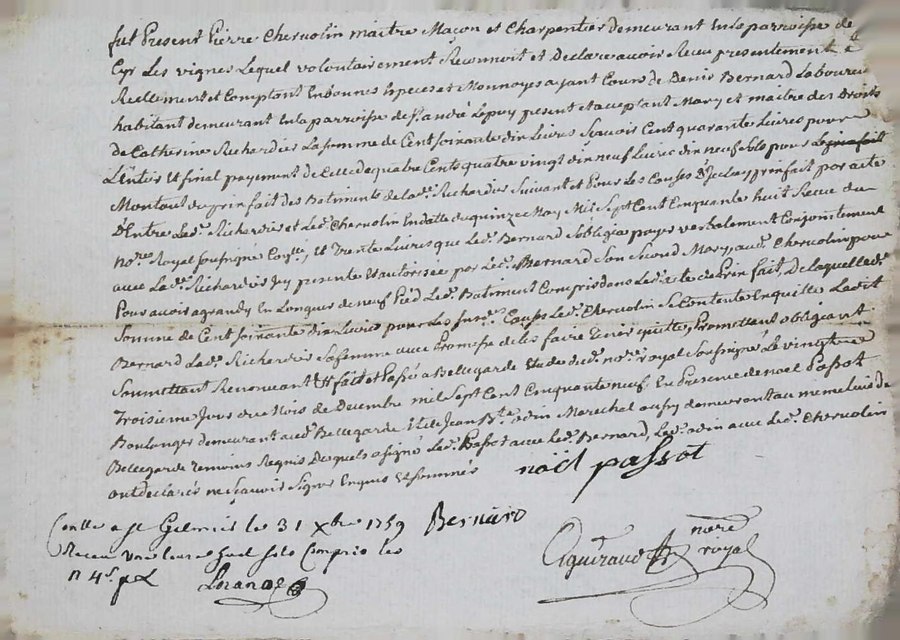 fut Present Pierre Chervolin maitre Macon et Charpentier demeurant En la parroisse de
Cyr Les vignes Lequel volontairement Reconnoit et Declare avoir Receu presentement et
Reellement et Comptant En bonnes Especes et Monnoyes ayant Cours de Benis Bernard Laboureur
habitant demeurant En la parroisse de St. andré Lepuy present et acceptant Mary et maitre des Droits
de Catherine Richardies La somme de Cent soixante dix Livres Sçavoir Cent quarante Livres pour
L'Entier et final payement de Celle de quatre Cents quatre vingt dix neuf Livres dix neuf sols pour Le
Montant du prix fait des Batiments de lad.e Richardies Suivant et Pour Les Causes du prix fait par acte
D'Entre Lad.e Richardies et Led.t Chervolin En datte du quinze May Mil Sept Cent Cinquante huit Receu du
no.re Royal soussigné Et Trente Livres que Led.t Bernard s'obligea payer verbalement Conjointement
avec Lad.e Richardies Icy presente Et autorisée par Led.t Bernard Son Second Mary, aud.t Chervolin pour
Pour avoir agrandy En Longueur de neuf Pied Led.t Batiment Compris dans Led.t prix fait, De laquelle d.e
Somme de Cent soixante dix Livres pour Les susd.es Causes Led.t Chervolin Se Contente En quitte Led.it
Bernard Lad.e Richardies Sa femme avec Promesse de les faire Tenir quittes, Promettant obligeant
Soumettant Renonçant &c fait et Passé a Bellegarde Etude dud.t no.re royal soussigné Le vingt
Troisieme Jour du Mois de Decembre mil Sept Cent Cinquante neuf En Presence de noel Passot
Boulanger demeurant aud.t Bellegarde Et de Jean B.te odin Marechal aussy demeurant au meme lieu de
Bellegarde temoins Requis Desquels a signé Led.t Passot avec Led.t Bernard, Led.t odin avec Led.t Chervolin
ont declarés ne Sçavoir Signer Enquis Et sommés
noël passot
Bernard
Conllé a St Gelmier le 31 Xbre 1759
Receu une livre sols Compris les
n 4s. p L
Ciguiraud no.re royal